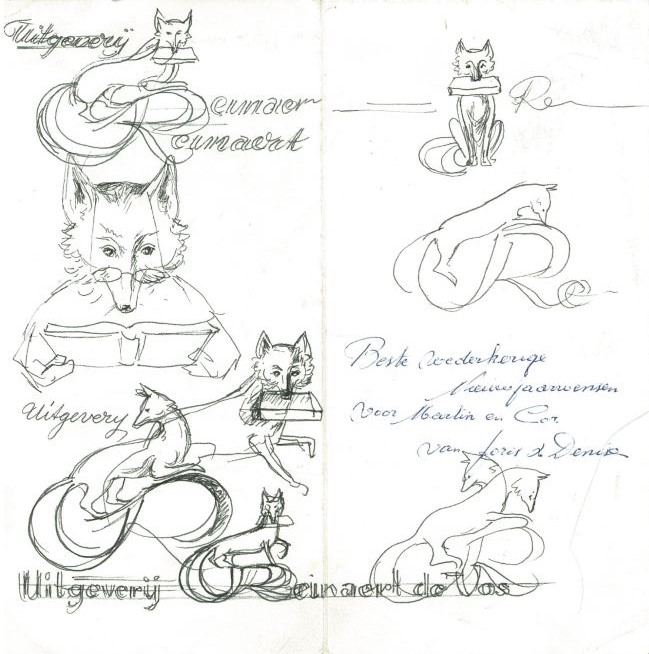 Uitgeverij
einaert
einaert
Re
Beste wederkerige
Nieuwjaarwensen
voor Martin en Cor.
van Joris & Denise
Uitgeverij
Uitgeverij Reinaert de Vos